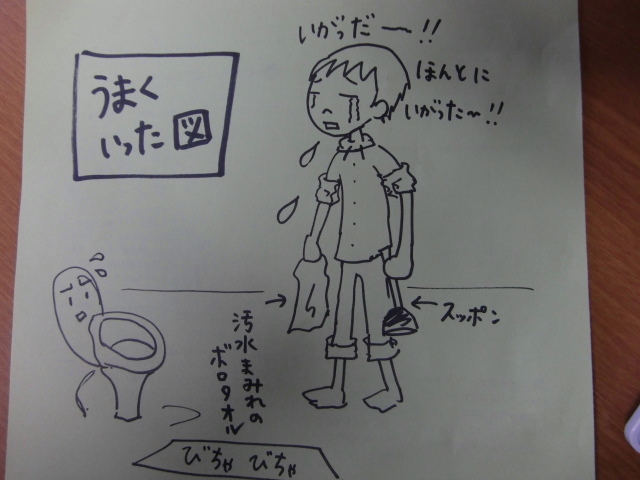 いがっだ〜!!
ほんとに
いがった〜!!
うまく
いった図
スッポン
汚水まみれの
ボロタオル
びちゃ びちゃ